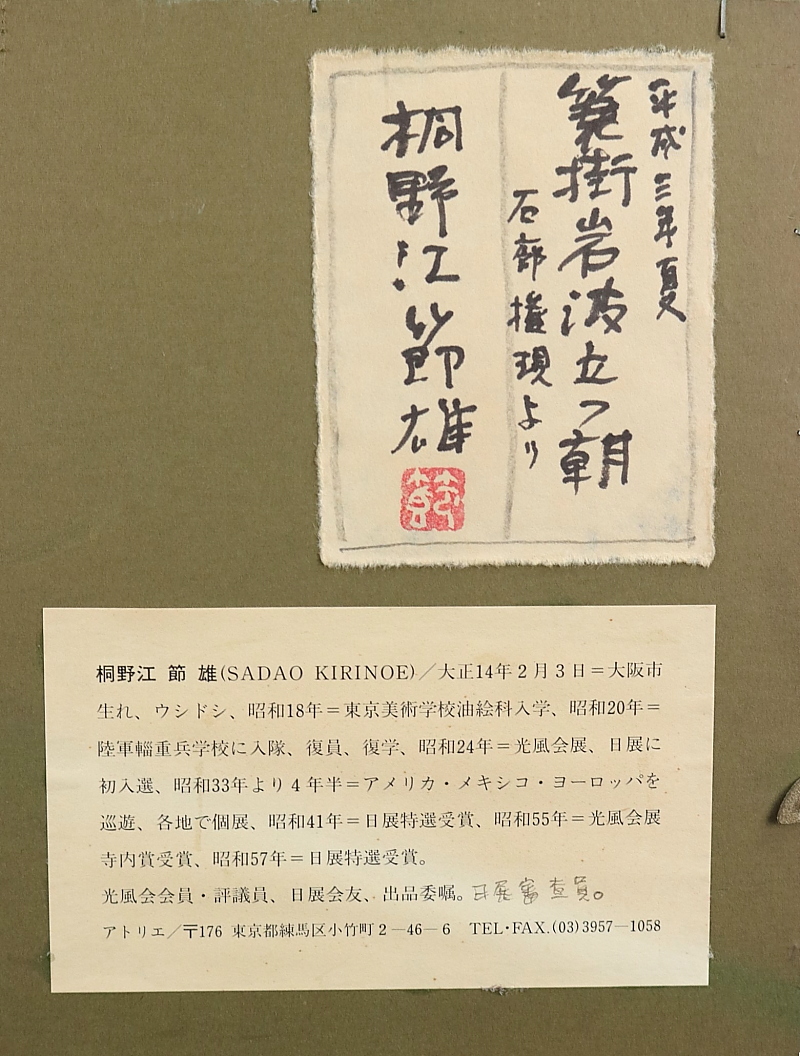 平成三年夏
簑掛岩波立つ朝
石部権現より
桐野江節雄
桐野江 節 雄(SADAO KIRINOE)／大正14年2月3日＝大阪市
生れ、ウシドシ、昭和18年＝東京美術学校油絵科入学、昭和20年＝
陸軍輜重兵学校に入隊、復員、復学、昭和24年＝光風会展、日展に
初入選、昭和33年より4年半＝アメリカ・メキシコ・ヨーロッパを
巡遊、各地で個展、昭和41年＝日展特選受賞、昭和55年＝光風会展
寺内賞受賞、昭和57年＝日展特選受賞。
光風会会員・評議員、日展会友、出品委嘱。日展審査員。
アトリエ／〒176 東京都練馬区小竹町2―46―6 TEL・FAX.(03)3957―1058